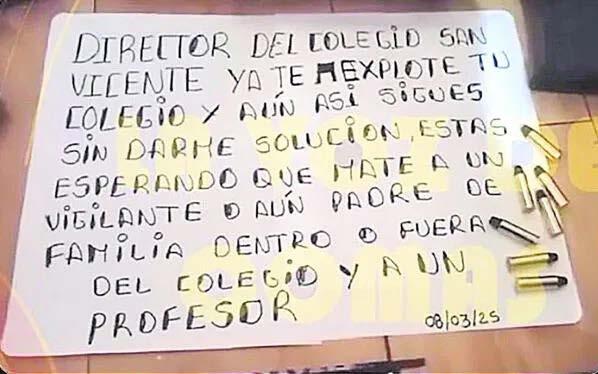 DIRECTOR DEL COLEGIO SAN
VICENTE YA TE EXPLOTE TU
COLEGIO Y AÚN ASI SIGUES
SIN DARME SOLUCION, ESTAS
ESPERANDO QUE MATE A UN
VIGILANTE O AÚN PADRE DE
FAMILIA DENTRO O FUERA
DEL COLEGIO Y A UN
PROFESOR
08/03/25